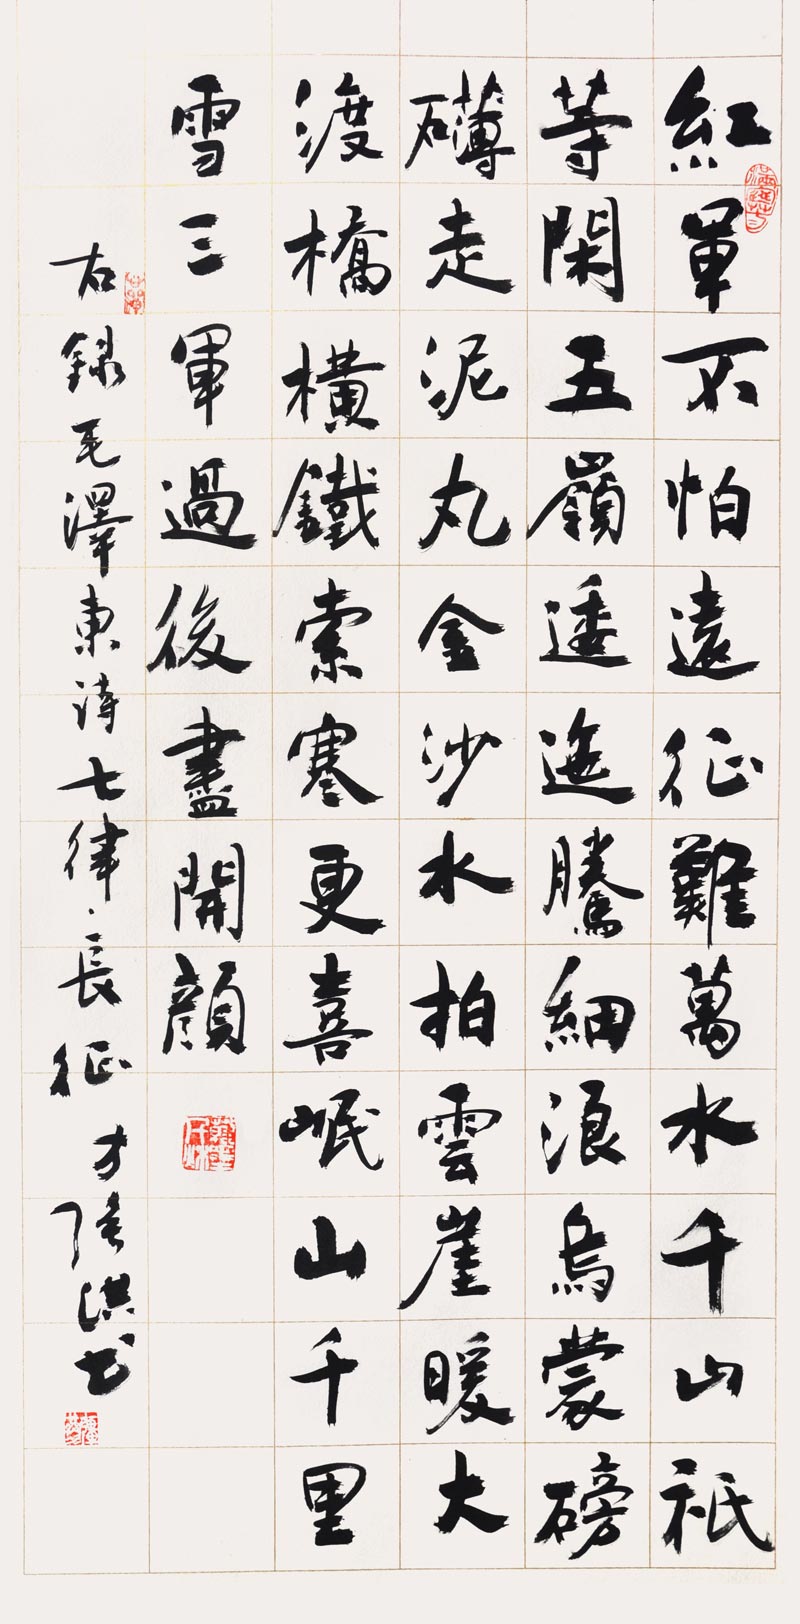 紅軍不怕遠征難萬水千山祇
等閑五嶺逶迤騰細浪烏蒙磅
礴走泥丸金沙水拍雲崖暖大
渡橋橫鐵索寒更喜岷山千里
雪三軍過後盡開顏
右錄毛澤東詩七律·長征方張洪書